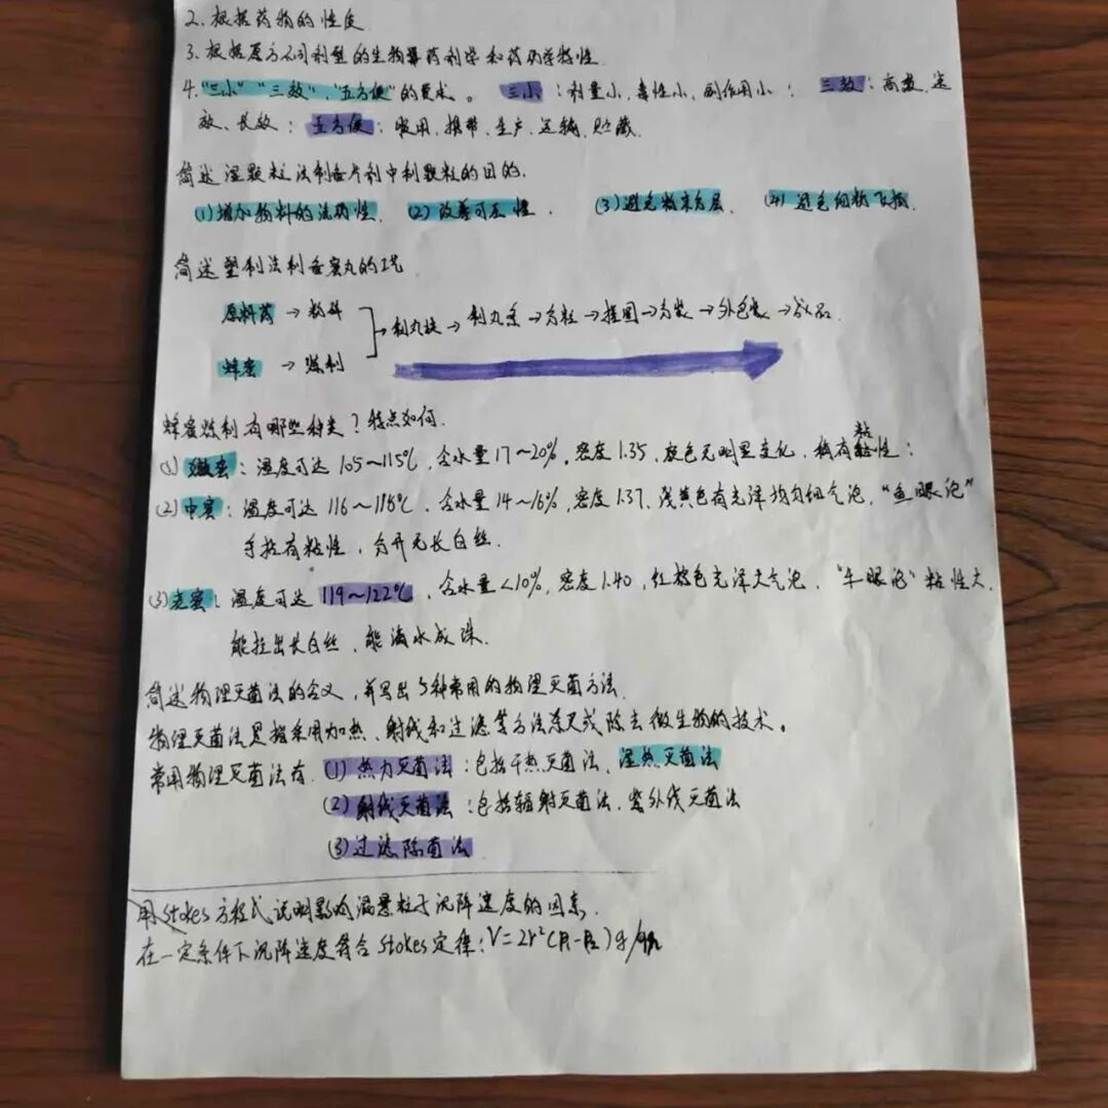 2. 根据药物的性质
3. 根据原方不同剂型的生物药剂学和药动学特性
4."三小""三效"，"五方便"的要求。 三小：剂量小，毒性小，副作用小； 三效：高效，速
效、长效； 五方便：服用，携带，生产，运输，贮藏
简述湿颗粒法制备片剂中制颗粒的目的．
(1)增加物料的流动性． (2)改善可压性． (3)避免粉末分层． (4)避免细粉飞扬．
简述塑制法制备蜜丸的工艺
原料药 → 粉碎
→制丸块→制丸条→分粒→搓圆→分装→外包装→成品．
蜂蜜 → 炼制
蜂蜜炼制有哪些种类？特点如何．
(1)嫩蜜：温度可达 105~115℃，含水量17~20%，密度1.35，颜色无明显变化，稍有粘性；
(2)中蜜：温度可达 116~118℃，含水量14~16%，密度1.37，浅黄色有光泽均匀细气泡，"鱼眼泡"
手捻有粘性，分开无长白丝．
(3)老蜜：温度可达 119~122℃，含水量<10%，密度1.40，红棕色光泽大气泡，"牛眼泡"粘性大，
能拉出长白丝，能滴水成珠．
简述物理灭菌法的含义，并写出3种常用的物理灭菌方法．
物理灭菌法是指采用加热、射线和过滤等方法杀灭或除去微生物的技术。
常用物理灭菌法有．(1)热力灭菌法：包括干热灭菌法、湿热灭菌法
(2)射线灭菌法：包括辐射灭菌法、紫外线灭菌法
(3)过滤除菌法
用Stokes方程式说明影响混悬粒子沉降速度的因素．
在一定条件下沉降速度符合Stokes定律：V=2r²(ρ₁-ρ₂)g/9η